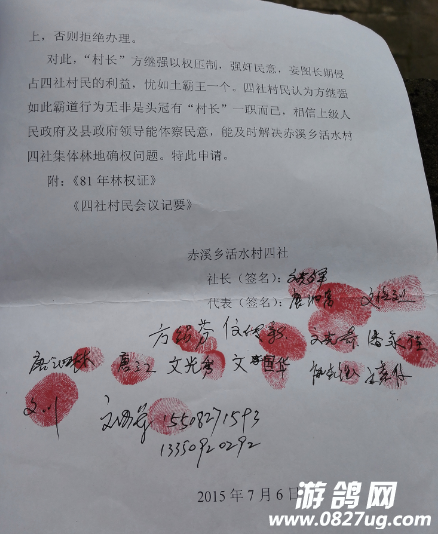 上，否则拒绝办理。
对此，“村长”方继强以权压制，强奸民意，妄图长期侵
占四社村民的利益，忧如土霸王一个。四社村民认为方继强
如此霸道行为无非是头冠有“村长”一职而已，相信上级人
民政府及县政府领导能体察民意，能及时解决赤溪乡活水村
四社集体林地确权问题。特此申请。
附：《81年林权证》
《四社村民会议记要》
赤溪乡活水村四社
社长（签名）：
代表（签名）：
唐江 文光秀 文国华
文川 15508271593
13350920292
2015年7月6日
游鸽网
www.0827ug.com